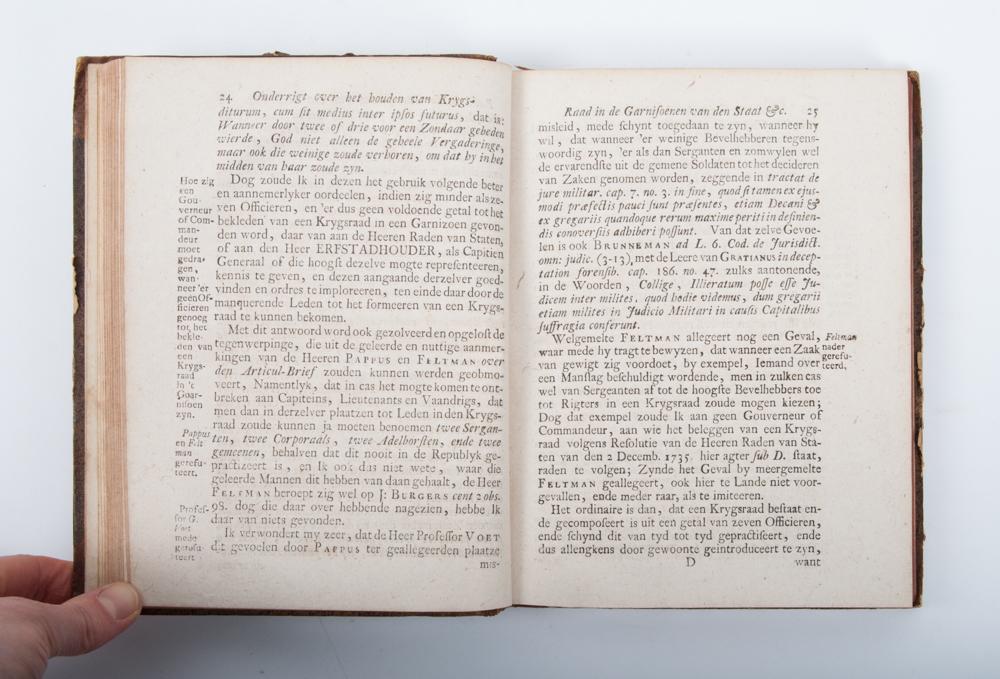 24 Onderrigt over het houden van Krygs-
diturum, cum sit medius inter ipsos futurus, dat is:
Wanneer door twee of drie voor een Zondaar gebeden
wierde, God niet alleen de geheele Vergaderinge,
maar ook die weinige zoude verhoren, om dat by in het
midden van haar zoude zyn.
Dog zoude Ik in dezen het gebruik volgende beter
en aannemerlyker oordeelen, indien zig minder als ze-
ven Officieren, en 'er dus geen voldoende getal tot het
bekleden van een Krygsraad in een Garnizoen gevon-
den word, daar van aan de Heeren Raden van Staten,
of aan den Heer ERFSTADHOUDER, als Capitien
Generaal of die hoogst dezelve mogte representeeren,
kennis te geven, en dezen aangaande derzelver goed-
vinden en ordres te imploreeren, ten einde daar door de
manquerende Leden tot het formeeren van een Krygs-
raad te kunnen bekomen.
Met dit antwoord word ook gezolveerd en opgelost de
tegenwerpinge, die uit de geleerde en nuttige aanmer-
kingen van de Heeren PAPPUS en FELTMAN over
den Articul-Brief zouden kunnen werden geobmo-
veert, Namentlyk, dat in cas het mogte komen te ont-
breken aan Capiteins, Lieutenants en Vaandrigs, dat
men dan in derzelver plaatzen tot Leden in den Krygs-
raad zoude kunnen ja moeten benoemen twee Sergan-
ten, twee Corporaals, twee Adelborsten, ende twee
gemeenen, behalven dat dit nooit in de Republyk ge-
practizeert is, en Ik ook das niet wete, waar die
geleerde Mannen dit hebben van daan gehaalt, de Heer
FELTMAN beroept zig wel op J: BURGERS cent 2 obs.
98. dog die daar over hebbende nagezien, hebbe Ik
daar van niets gevonden.
Ik verwondert my zeer, dat de Heer Professor VOET
dit gevoelen door PAPPUS ter geallegeerden plaatze
mis-
Hoe zig
een
Gou-
verneur
of Com-
man-
deur
moet
gedra-
gen,
wan-
neer 'er
geen Of-
ficieren
genoeg
tot het
bekle-
den van
een
Krygs-
raad
in 't
Guar-
nisoen
zyn.
Pappus
en Felt
man
gerefu-
teert.
Profes-
sor G.
Voet
mede
gerefu-
teert
Raad in de Garnisoenen van den Staat &c. 25
misleid, mede schynt toegedaan te zyn, wanneer hy
wil, dat wanneer 'er weinige Bevelhebberen tegens-
woordig zyn, 'er als dan Serganten en zomwylen wel
de ervarendste uit de gemene Soldaten tot het decideren
van Zaken genomen worden, zeggende in tractat de
jure militar. cap. 7. no. 3. in fine, quod si tamen ex ejus-
modi præfectis pauci sunt præsentes, etiam Decani &
ex gregariis quandoque rerum maxime periti in definien-
dis conoversiis adhiberi possunt. Van dat zelve Gevoe-
len is ook BRUNNEMAN ad L. 6. Cod. de Jurisdict.
omn: judic. (3-13), met de Leere van GRATIANUS in decep-
tation forensib. cap. 186. no. 47. zulks aantonende,
in de Woorden, Collige, Illieratum posse esse Ju-
dicem inter milites, quod hodie videmus, dum gregarii
etiam milites in Judicio Militari in causis Capitalibus
suffragia conferunt.
Welgemelte FELTMAN allegeert nog een Geval,
waar mede hy tragt te bewyzen, dat wanneer een Zaak
van gewigt zig voordoet, by exempel, Iemand over
een Manslag beschuldigt wordende, men in zulken cas
wel van Sergeanten af tot de hoogste Bevelhebbers toe
tot Rigters in een Krygsraad zoude mogen kiezen;
Dog dat exempel zoude Ik aan geen Gouverneur of
Commandeur, aan wie het beleggen van een Krygs-
raad volgens Resolutie van de Heeren Raden van Sta-
ten van den 2 Decemb. 1735. hier agter sub D. staat,
raden te volgen; Zynde het Geval by meergemelte
FELTMAN geallegeert, ook hier te Lande niet voor-
gevallen, ende meder raar, als te imiteeren.
Het ordinaire is dan, dat een Krygsraad bestaat en-
de gecomposeert is uit een getal van zeven Officieren,
ende schynd dit van tyd tot tyd gepractiseert, ende
dus allengkens door gewoonte geintroduceert te zyn,
D want
Feltman
nader
gerefu-
teerd.